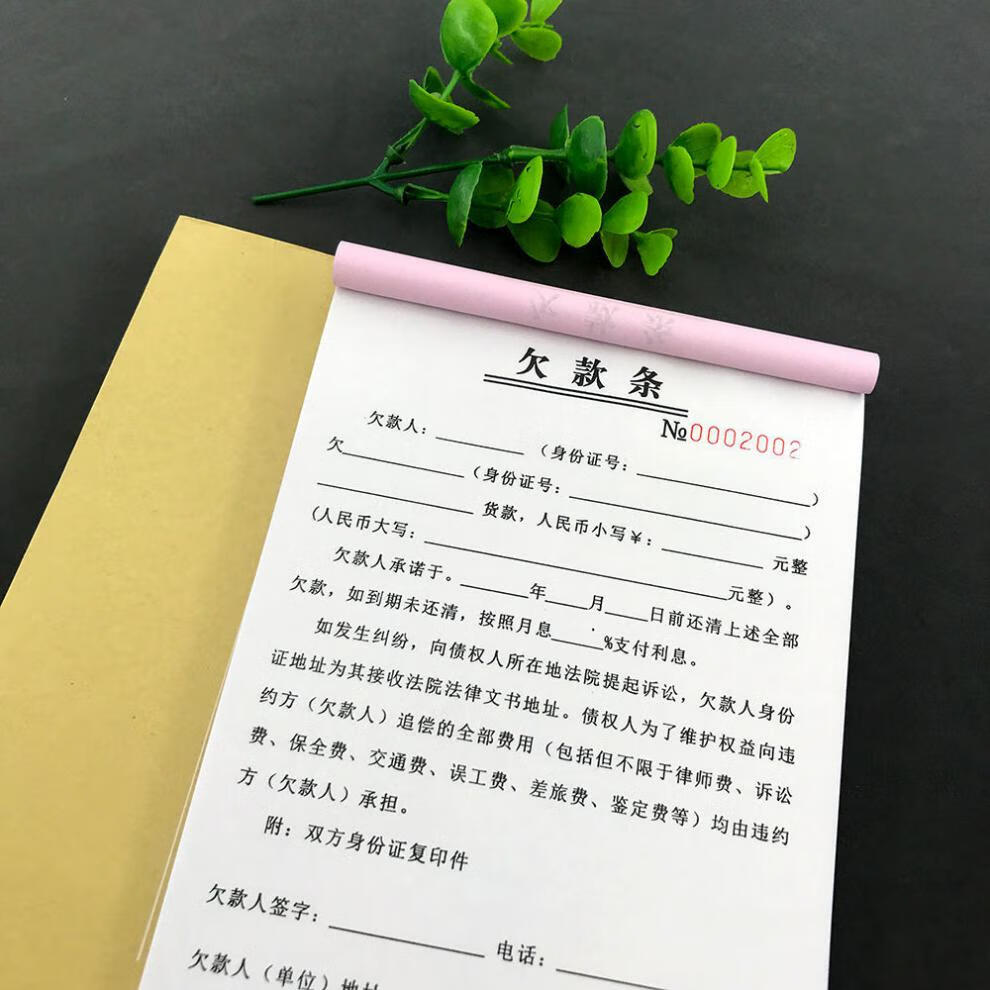 欠款条
№0002002
欠款人：________（身份证号：________________）
欠__________（身份证号：____________________）
______________货款，人民币小写￥：________元整
（人民币大写：________________________元整）。
欠款人承诺于。______年____月____日前还清上述全部
欠款，如到期未还清，按照月息____%支付利息。
如发生纠纷，向债权人所在地法院提起诉讼，欠款人身份
证地址为其接收法院法律文书地址。债权人为了维护权益向违
约方（欠款人）追偿的全部费用（包括但不限于律师费、诉讼
费、保全费、交通费、误工费、差旅费、鉴定费等）均由违约
方（欠款人）承担。
附：双方身份证复印件
欠款人签字：____________电话：____________
欠款人（单位）地址